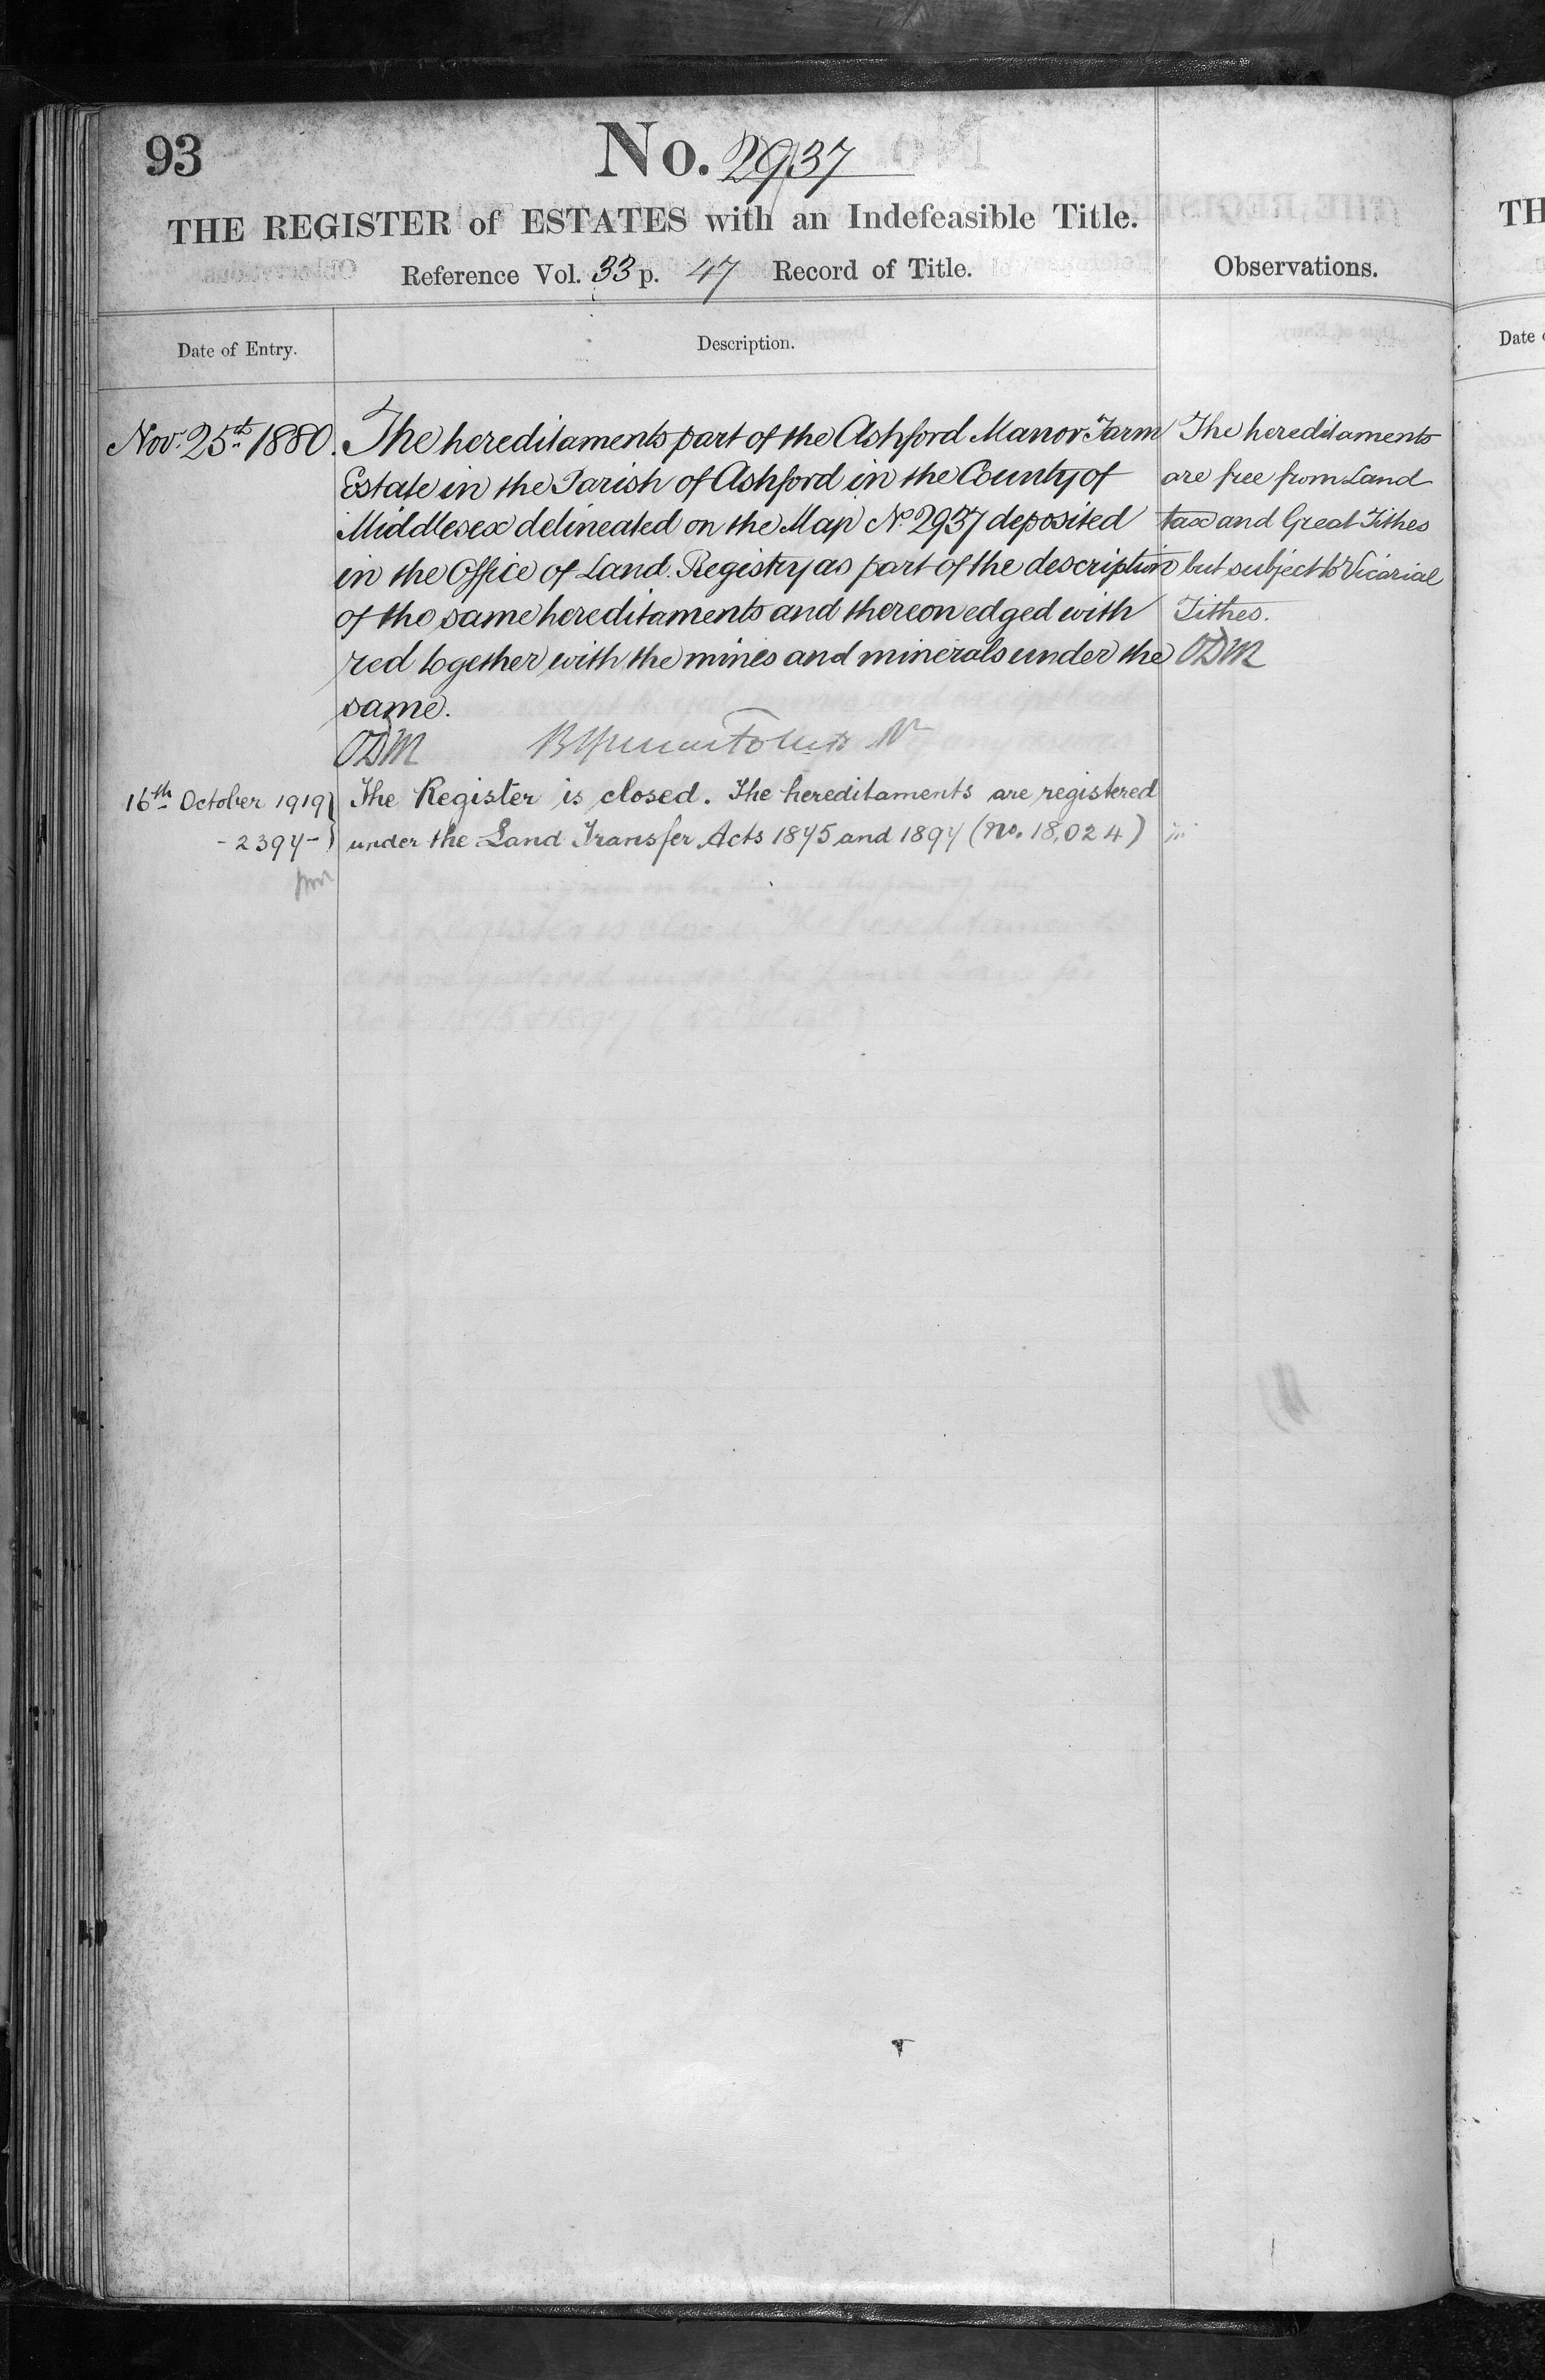 93
No. 2937
THE REGISTER of ESTATES with an Indefeasible Title.
Reference Vol. 33 p. 47 Record of Title.
Observations.
Date of Entry.
Description.
Nov. 25th 1880.
The hereditaments part of the Ashford Manor Farm
Estate in the Parish of Ashford in the County of
Middlesex delineated on the Map No. 2937 deposited
in the Office of Land Registry as part of the description
of the same hereditaments and thereon edged with
red together with the mines and minerals under the
same.
ODM
The hereditaments
are free from Land
tax and Great Tithes
but subject to Vicarial
Tithes.
ODM
16th October 1919
- 2394 -
The Register is closed. The hereditaments are registered
under the Land Transfer Acts 1875 and 1897 (No. 18,024)
TH
Date